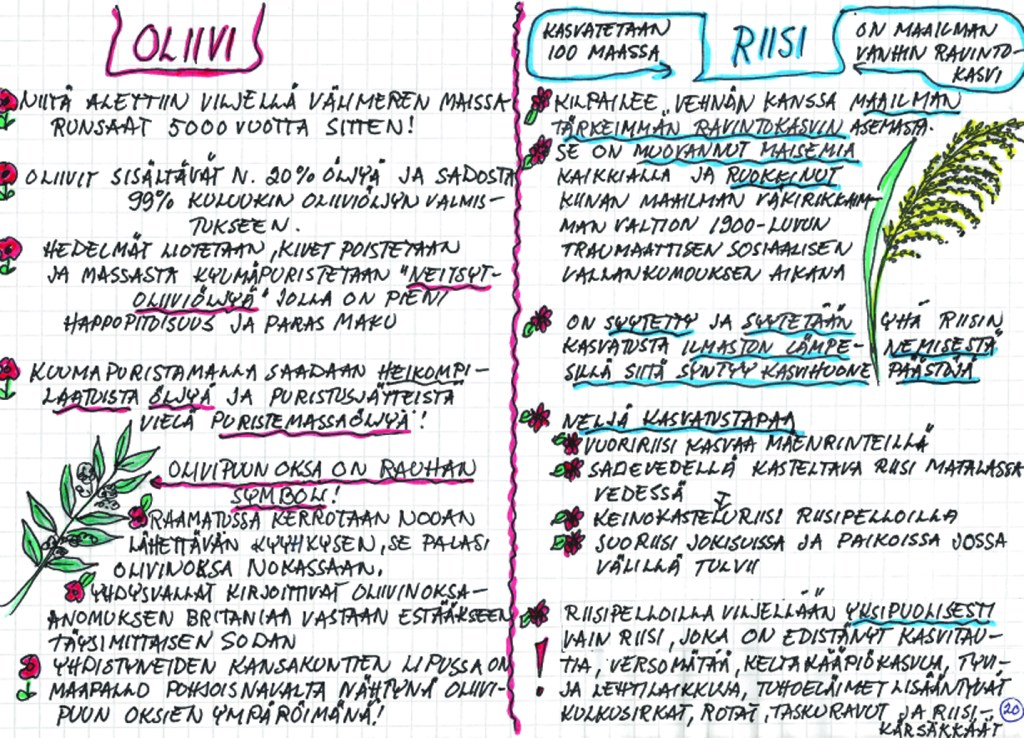 OLIIVI
NIITÄ ALETTIIN VILJELLÄ VÄLIMEREN MAISSA
RUNSAAT 5000 VUOTTA SITTEN!
OLIIVIT SISÄLTÄVÄT N. 20% ÖLJYÄ JA SADOSTA
99% KULUUKIN OLIIVIÖLJYN VALMIS-
TUKSEEN.
HEDELMÄT LIOTETAAN, KIVET POISTETAAN
JA MASSASTA KYLMÄPURISTETAAN "NEITSYT-
OLIIVIÖLJYÄ" JOLLA ON PIENI
HAPPOPITOISUUS JA PARAS MAKU
KUUMAPURISTAMALLA SAADAAN HEIKOMPI-
LAATUISTA ÖLJYÄ JA PURISTUSJÄTTEISTÄ
VIELÄ PURISTEMASSAÖLJYÄ!
OLIVIPUUN OKSA ON RAUHAN
SYMBOLI!
RAAMATUSSA KERROTAAN NOOAN
LÄHETTÄVÄN KYYHKYSEN, SE PALASI
OLIVINOKSA NOKASSAAN.
YHDYSVALLAT KIRJOITTIVAT OLIIVINOKSA-
ANOMUKSEN BRITANIAA VASTAAN ESTÄÄKSEEN
TÄYSIMITTAISEN SODAN
YHDISTYNEIDEN KANSAKUNTIEN LIPUSSA ON
MAAPALLO POHJOISNAVALTA NÄHTYNÄ OLIIVI-
PUUN OKSIEN YMPÄRÖIMÄNÄ!
KASVATETAAN
100 MAASSA
RIISI
ON MAAILMAN
VANHIN RAVINTO-
KASVI
KILPAILEE VEHNÄN KANSSA MAAILMAN
TÄRKEIMMÄN RAVINTOKASVIN ASEMASTA.
SE ON MUOVANNUT MAISEMIA
KAIKKIALLA JA RUOKKINUT
KIINAN MAAILMAN VÄKIRIKKAIM-
MAN VALTION 1900-LUVUN
TRAUMAATTISEN SOSIAALISEN
VALLANKUMOUKSEN AIKANA
ON SYYTETTY JA SYYTETÄÄN YHÄ RIISIN
KASVATUSTA ILMASTON LÄMPE- NEMISESTÄ
SILLÄ SIITÄ SYNTYY KASVIHUONE PÄÄSTÖJÄ
NELJÄ KASVATUSTAPAA
VUORIRIISI KASVAA MÄENRINTEILLÄ
SADEVEDELLÄ KASTELTAVA RIISI MATALASSA
VEDESSÄ
KEINOKASTELURIISI RIISIPELLOILLA
SUORIISI JOKISUISSA JA PAIKOISSA JOSSA
VÄLILLÄ TULVII
RIISIPELLOILLA VILJELLÄÄN YKSIPUOLISESTI
VAIN RIISI, JOKA ON EDISTÄNYT KASVITAU-
TIA, VERSOMÄTÄÄ, KELTAKÄÄPIÖKASVUA, TYVI-
JA LEHTILAIKKUJA, TUHOELÄIMET LISÄÄNTYVÄT
KULKUSIRKAT, ROTAT, TASKURAVUT JA RIISI-
KÄRSÄKKÄÄT
20